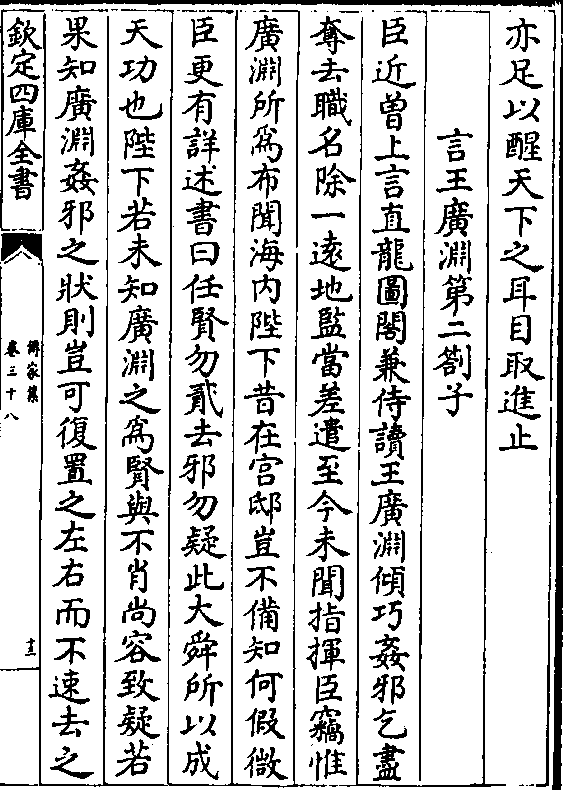 亦足以醒天下之耳目取進止
言王廣淵第二劄子
臣近曽上言直龍圖閣兼侍讀王廣淵傾巧姦邪乞盡
奪去職名除一逺地監當差遣至今未聞指揮臣竊惟
廣淵所為布聞海内陛下昔在宫邸豈不備知何假微
臣更有詳述書曰任賢勿貳去邪勿疑此大舜所以成
天功也陛下若未知廣淵之為賢與不肖尚容致疑若
果知廣淵姦邪之狀則豈可復置之左右而不速去之
欽定四庫全書
傳家集
卷三十八
十三